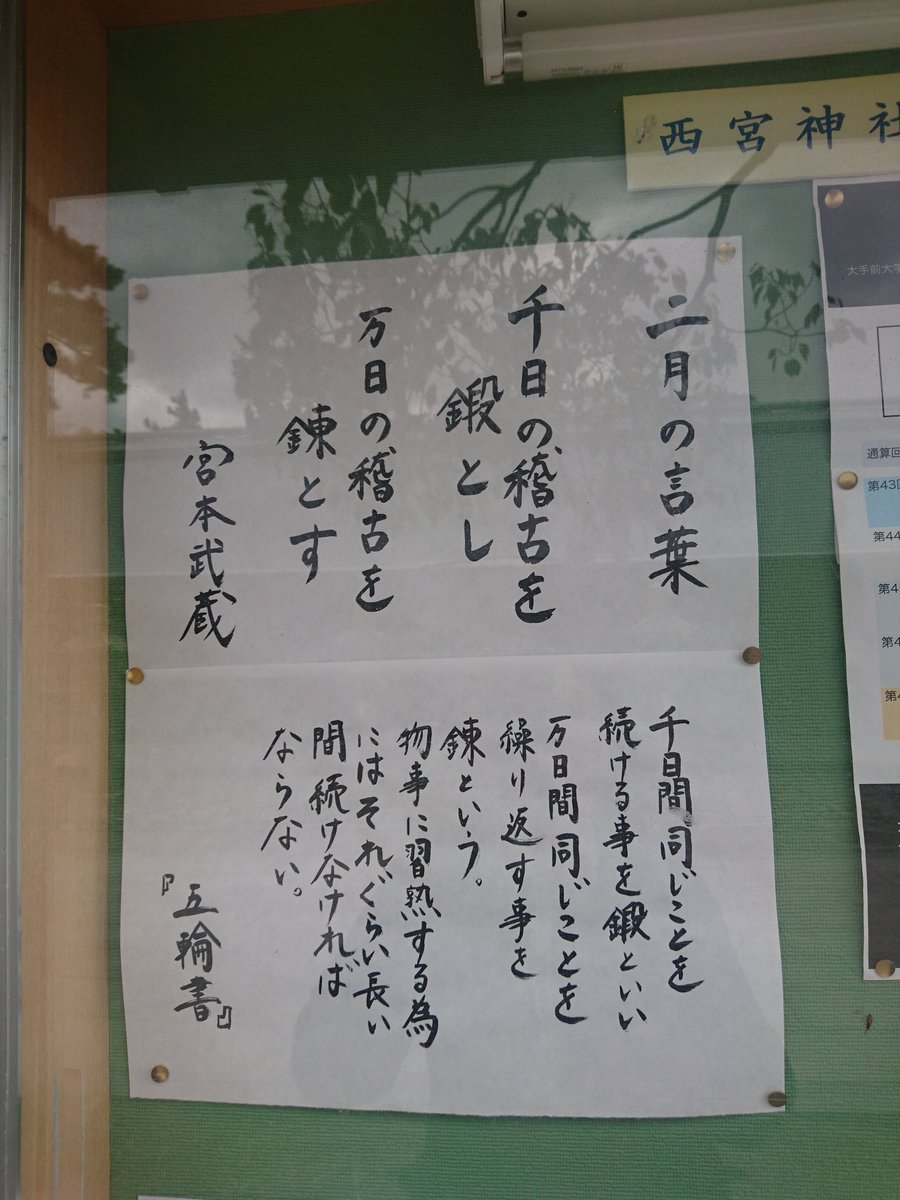 西宮神社
二月の言葉
千日の稽古を
鍛とし
万日の稽古を
錬とす
宮本武蔵
千日間同じことを
続ける事を鍛といい
万日間同じことを
繰り返す事を
錬という。
物事に習熟する為
にはそれぐらい長い
間続けなければ
ならない。
『五輪書』
大手前大学
通算回
第43回
第44
第4
第4
第4